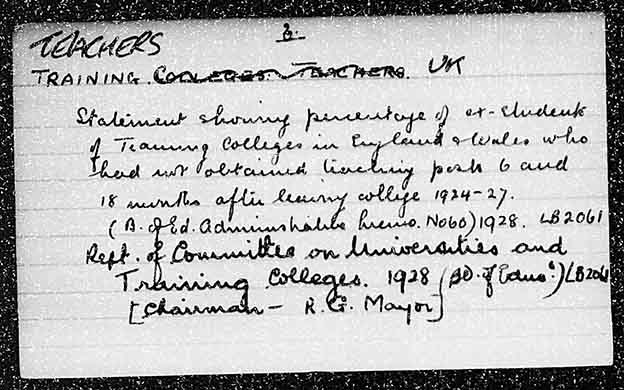 TEACHERS 2.
TRAINING. COLLEGES. TEACHERS. UK
Statement showing percentage of ex-students
of Training Colleges in England & Wales who
had not obtained teaching posts 6 and
18 months after leaving college 1924-27.
(B. of Ed. Administrative Memo. No60) 1928. LB2061
Rept. of Committee on Universities and
Training Colleges. 1928 (BD. of Educn.) LB2061
[Chairman - R. G. Mayor]